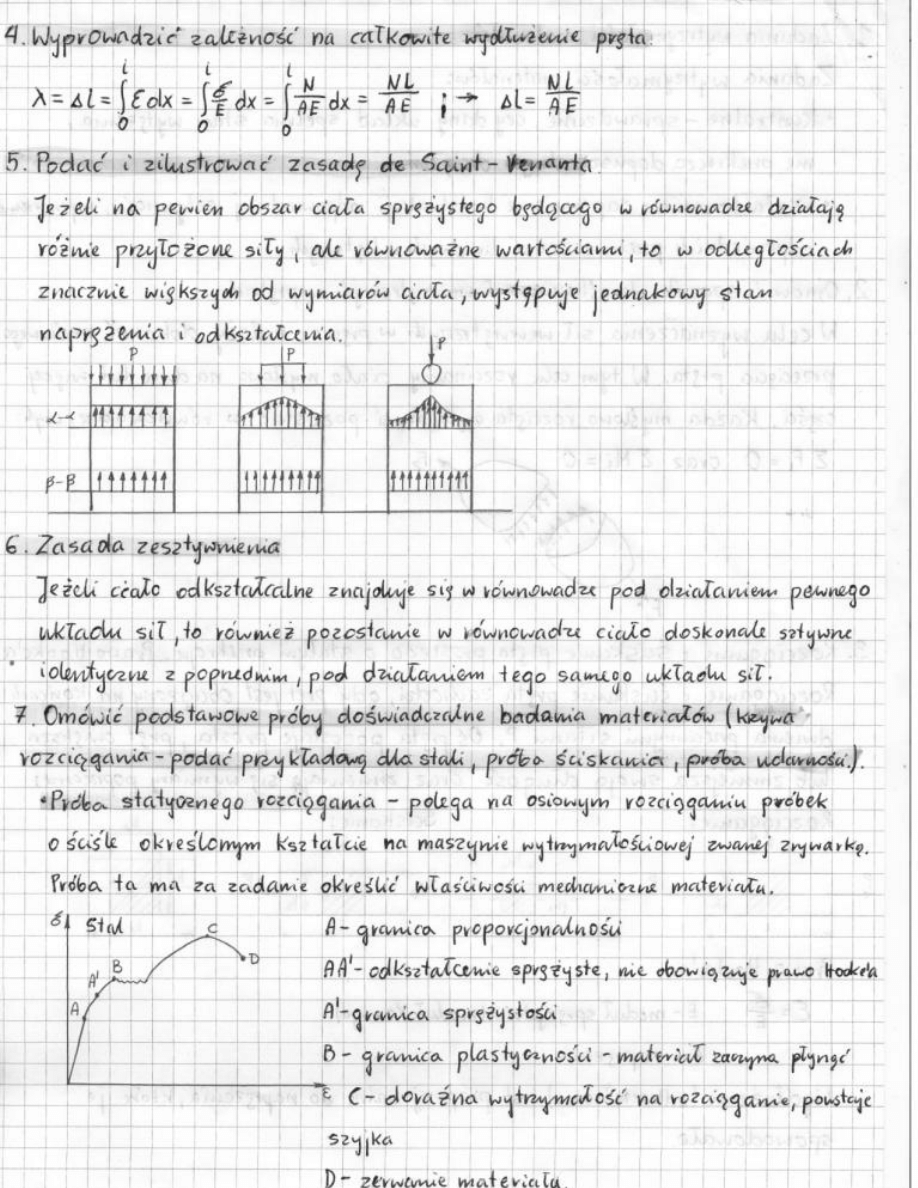 4. Wyprowadzić zależność na całkowite wydłużenie pręta.
λ = Δl = ∫₀ˡ ε dx = ∫₀ˡ σ/E dx = ∫₀ˡ N/AE dx = NL/AE ; → Δl = NL/AE
5. Podać i zilustrować zasadę de Saint-Venanta.
Jeżeli na pewien obszar ciała sprężystego będącego w równowadze działają
różnie przyłożone siły, ale równoważne wartościami, to w odległościach
znacznie większych od wymiarów ciała, występuje jednakowy stan
naprężenia i odkształcenia.
P P P
α-α
β-β
6. Zasada zesztywnienia
Jeżeli ciało odkształcalne znajduje się w równowadze pod działaniem pewnego
układu sił, to również pozostanie w równowadze ciało doskonale sztywne
identyczne z poprzednim, pod działaniem tego samego układu sił.
7. Omówić podstawowe próby doświadczalne badania materiałów (krzywa
rozciągania - podać przykładową dla stali, próba ściskania, próba udarności).
• Próba statycznego rozciągania - polega na osiowym rozciąganiu próbek
o ściśle określonym kształcie na maszynie wytrzymałościowej zwanej zrywarką.
Próba ta ma za zadanie określić właściwości mechaniczne materiału.
σ Stal
A A' B C D
ε
A - granica proporcjonalności
AA' - odkształcenie sprężyste, nie obowiązuje prawo Hooke'a
A' - granica sprężystości
B - granica plastyczności - materiał zaczyna płynąć
C - doraźna wytrzymałość na rozciąganie, powstaje
szyjka
D - zerwanie materiału.